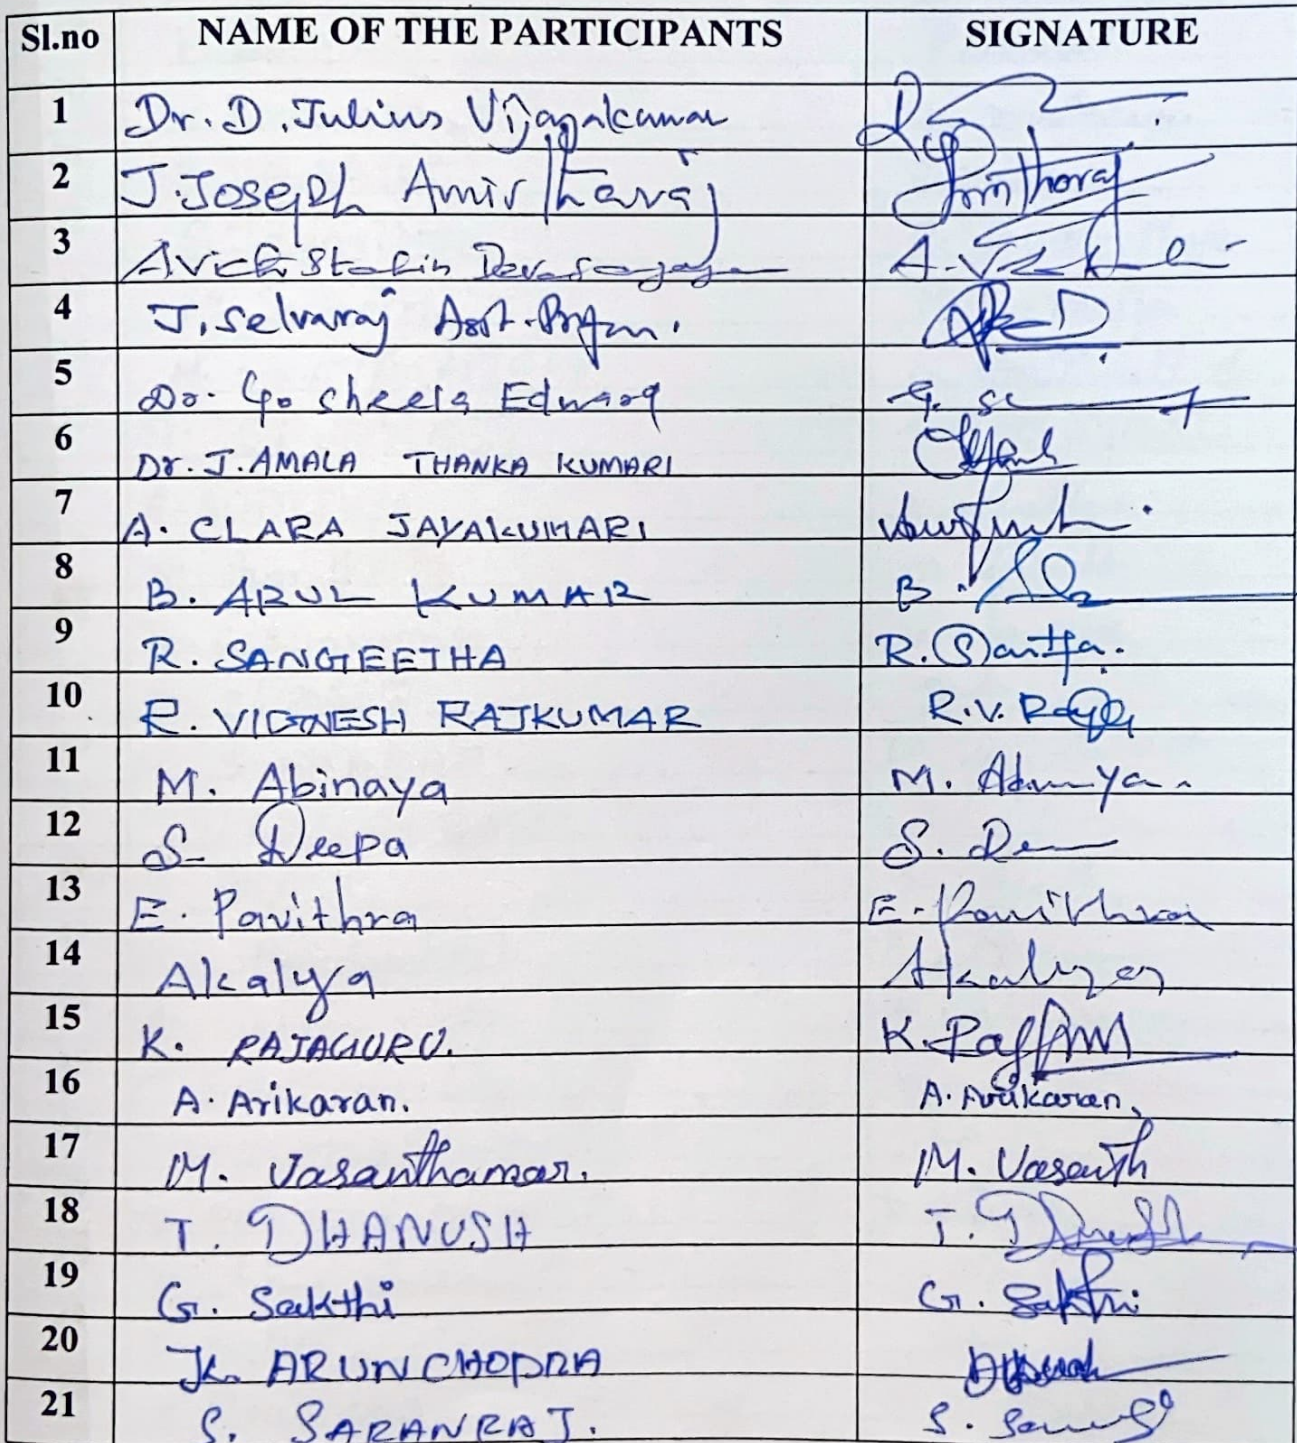 Sl.no NAME OF THE PARTICIPANTS SIGNATURE
1 Dr. D. Julius Vijayakumar
2 J. Joseph Amirtharaj Amirtharaj
3 A. Stalin Devasagayam A.
4 J. Selvaraj Asst. Profm.
5 Dr. G. Sheela Edward G.
6 Dr. J. AMALA THANKA KUMARI
7 A. CLARA JAYAKUMARI
8 B. ARUL KUMAR B.
9 R. SANGEETHA R.
10 R. VIGNESH RAJKUMAR R.V.
11 M. Abinaya M. Abinaya.
12 S. Deepa S.
13 E. Pavithra E. Pavithra
14 Akalya Akalya
15 K. RAJAGURU. K.
16 A. Arikaran. A. Arikaran.
17 M. Vasanthamar. M. Vasanth
18 T. DHANUSH T. Dhanush
19 G. Sakthi G. Sakthi
20 K. ARUN CHOPRA
21 S. SARANRAJ. S.